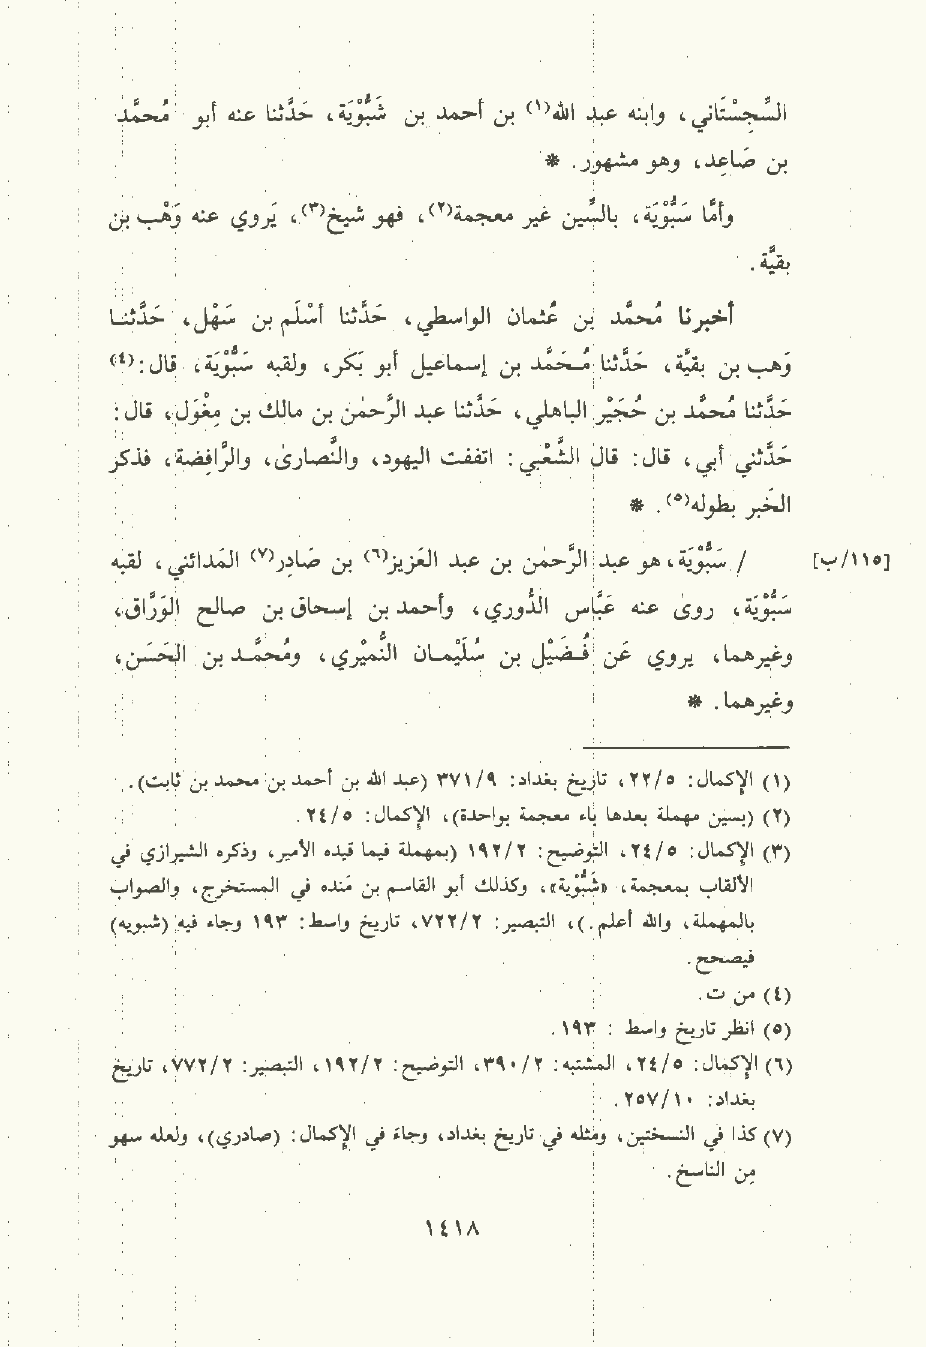 السِّجِسْتَاني، وابنه عبد الله(١) بن أحمد بن شَبُّوْيَة، حَدَّثنا عنه أبو مُحمَّد
بن صَاعِد، وهو مشهور. *
وأمَّا سَبُّوْيَة، بالسِّين غير معجمة(٢)، فهو شيخ(٣)، يَروي عنه وَهْب بن
بقيَّة.
أخبرنا مُحمَّد بن عُثمان الواسطي، حَدَّثنا أسْلَم بن سَهْل، حَدَّثنا
وَهب بن بقيَّة، حَدَّثنا مُحَمَّد بن إسماعيل أبو بَكر، ولقبه سَبُّوْيَة، قال:(٤)
حَدَّثنا مُحمَّد بن حُجَيْر الباهلي، حَدَّثنا عبد الرَّحمٰن بن مالك بن مِغْوَل، قال:
حَدَّثني أبي، قال: قال الشَّعْبي: اتفقت اليهود، والنَّصارىٰ، والرَّافِضة، فذكر
الخَبر بطوله(٥). *
[١١٥/ب] / سَبُّوْيَة، هو عبد الرَّحمٰن بن عبد العَزيز(٦) بن صَادِر(٧) المَدائني، لقبه
سَبُّوْيَة، روىٰ عنه عَبَّاس الدُّوري، وأحمد بن إسحاق بن صالح الوَرَّاق،
وغيرهما، يروي عَن فُضَيْل بن سُلَيْمان النُّمَيْري، ومُحَمَّد بن الحَسَن،
وغيرهما. *
(١) الإكمال: ٢٢/٥، تاريخ بغداد: ٣٧١/٩ (عبد الله بن أحمد بن محمد بن ثابت).
(٢) (بسين مهملة بعدها باء معجمة بواحدة)، الإكمال: ٢٤/٥.
(٣) الإكمال: ٢٤/٥، التوضيح: ١٩٢/٢ (بمهملة فيما قيده الأمير، وذكره الشيرازي في
الألقاب بمعجمة، «شَبُّويَة»، وكذلك أبو القاسم بن مَنده في المستخرج، والصواب
بالمهملة، والله أعلم.)، التبصير: ٧٢٢/٢، تاريخ واسط: ١٩٣ وجاء فيه (شبويه)
فيصحح.
(٤) من ت.
(٥) انظر تاريخ واسط : ١٩٣.
(٦) الإكمال: ٢٤/٥، المشتبه: ٣٩٠/٢، التوضيح: ١٩٢/٢، التبصير: ٧٧٢/٢، تاريخ
بغداد: ٢٥٧/١٠.
(٧) كذا في النسختين، ومثله في تاريخ بغداد، وجاء في الإكمال: (صادري)، ولعله سهو
مِن الناسخ.
١٤١٨